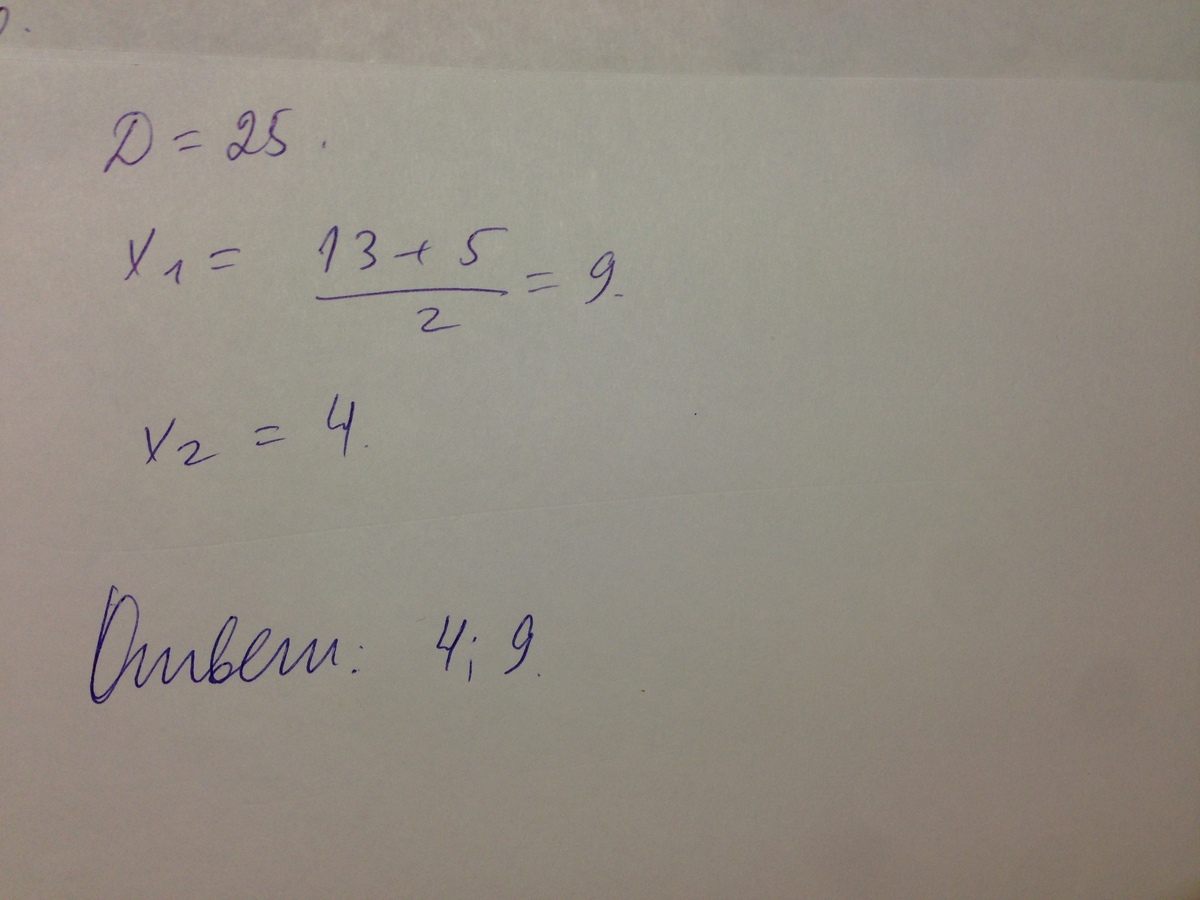 D = 25.
x₁ = (13 + 5)/2 = 9.
x₂ = 4.
Ответ: 4; 9.